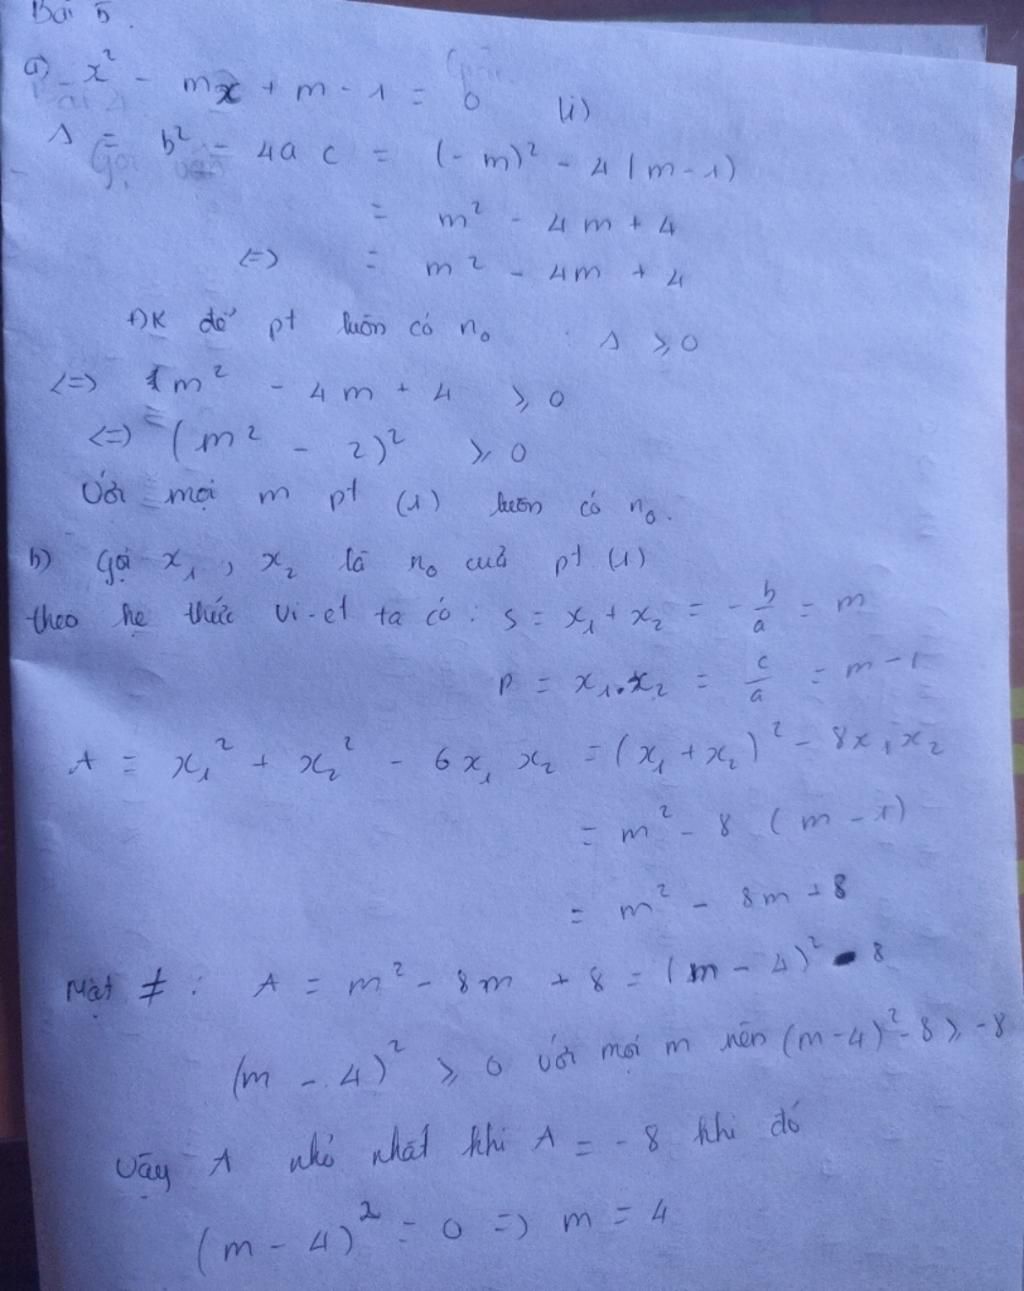 Bài 5.
a) x² - mx + m - 1 = 0 (1)
Δ = b² - 4ac = (-m)² - 4(m-1)
= m² - 4m + 4
<=> = m² - 4m + 4
ĐK để pt luôn có n₀ : Δ ≥ 0
<=> m² - 4m + 4 ≥ 0
<=> (m² - 2)² ≥ 0
Với mọi m pt (1) luôn có n₀.
b) Gọi x₁, x₂ là n₀ cuả pt (1)
theo hệ thức Vi-et ta có : S = x₁ + x₂ = -b/a = m
P = x₁.x₂ = c/a = m-1
A = x₁² + x₂² - 6x₁x₂ = (x₁ + x₂)² - 8x₁x₂
= m² - 8(m-1)
= m² - 8m + 8
Mặt ≠ : A = m² - 8m + 8 = (m - 4)² - 8
(m - 4)² ≥ 0 với mọi m nên (m-4)² - 8 ≥ -8
Vậy A nhỏ nhất khi A = -8 khi đó
(m - 4)² = 0 => m = 4